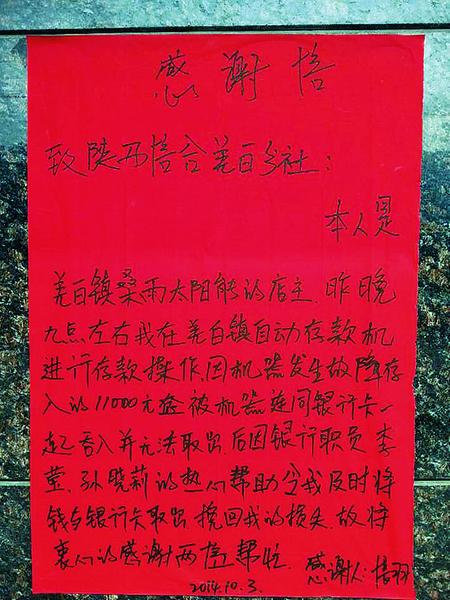 感谢信
致陕西信合羌白分社:
本人是
羌白镇桑雨太阳能的店主.昨晚
九点左右我在羌白镇自动存款机
进行存款操作.因机器发生故障存
入的11000元全被机器连同银行卡一
起吞入并无法取出.后因银行职员李
莹.孙晓莉的热心帮助令我及时将
钱与银行卡取出挽回我的损失.故将
衷心的感谢两位帮忙. 感谢人:
2014.10.3.